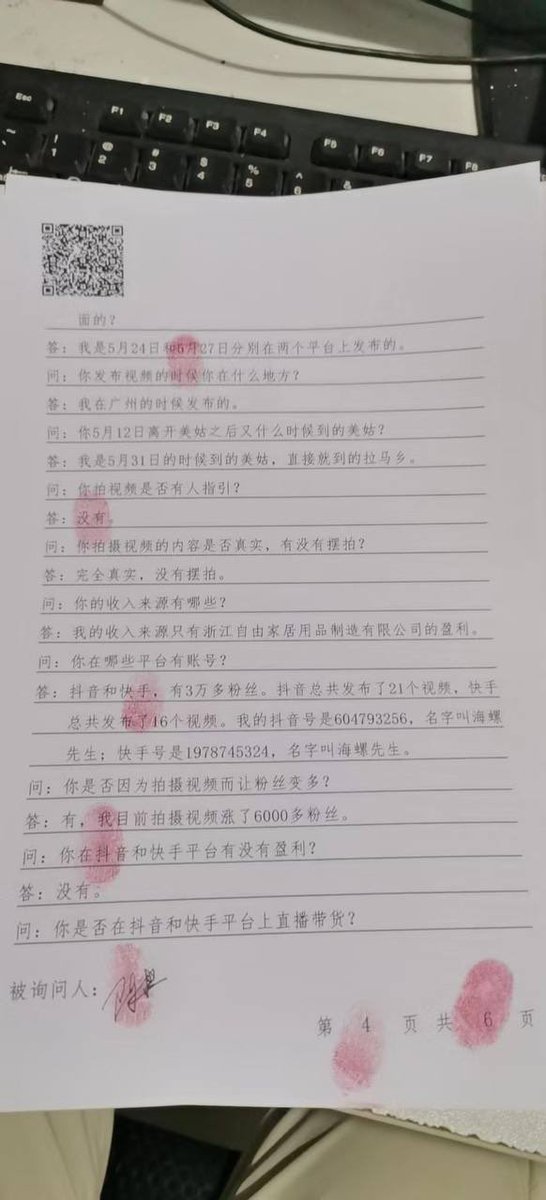 Esc
F1
F2
F3
F4
F5
F6
F7
F8
~
!
1
@
2
#
3
$
4
%
5
^
6
&
面的？
答：我是5月24日和5月27日分别在两个平台上发布的。
问：你发布视频的时候你在什么地方？
答：我在广州的时候发布的。
问：你5月12日离开美姑之后又什么时候到的美姑？
答：我是5月31日的时候到的美姑，直接就到的拉马乡。
问：你拍视频是否有人指引？
答：没有。
问：你拍摄视频的内容是否真实，有没有摆拍？
答：完全真实，没有摆拍。
问：你的收入来源有哪些？
答：我的收入来源只有浙江自由家居用品制造有限公司的盈利。
问：你在哪些平台有账号？
答：抖音和快手，有3万多粉丝。抖音总共发布了21个视频，快手
总共发布了16个视频。我的抖音号是604793256，名字叫海螺
先生；快手号是1978745324，名字叫海螺先生。
问：你是否因为拍摄视频而让粉丝变多？
答：有，我目前拍摄视频涨了6000多粉丝。
问：你在抖音和快手平台有没有盈利？
答：没有。
问：你是否在抖音和快手平台上直播带货？
被询问人：
第 4 页 共 6 页